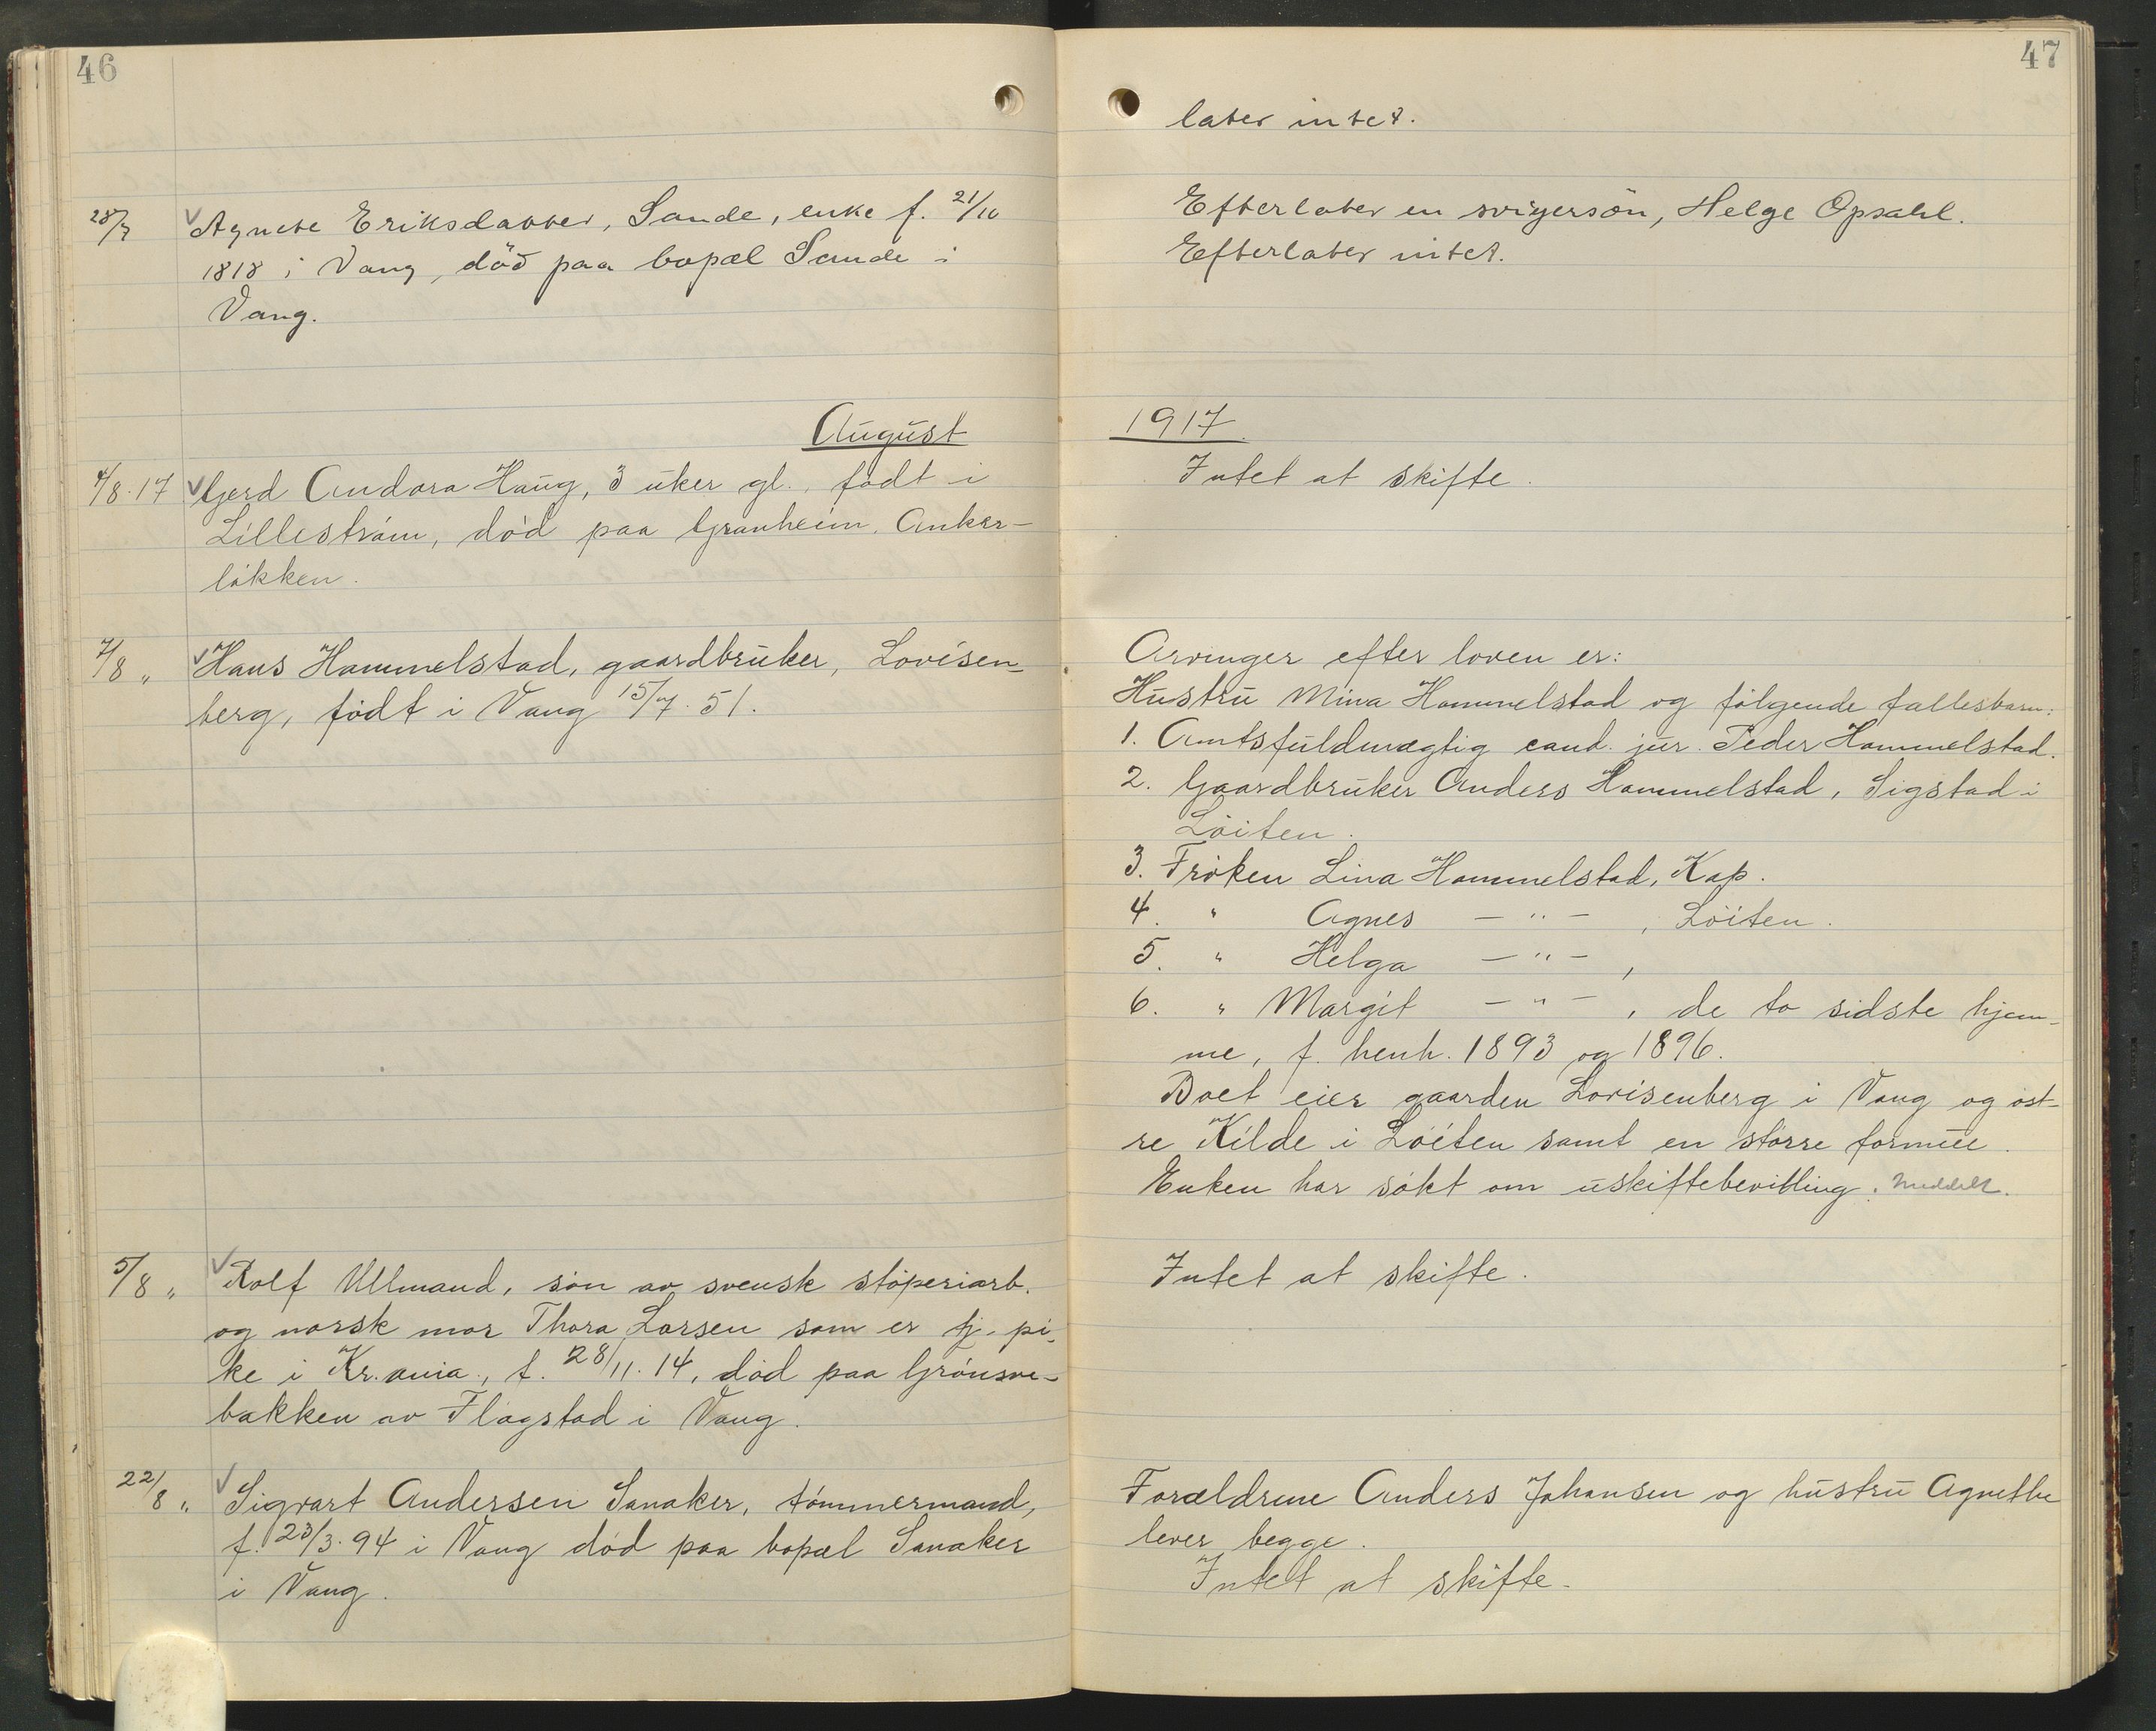 46
28/7 Agnete Eriksdatter, Sande, enke f. 21/10
1818 i Vang, död paa bopæl Sande i
Vang.
August
4/8.17 Gerd Andora Haug, 3 uker gl., født i
Lilleström, död paa Granheim, Anker-
løkken.
7/8 „ Hans Hammelstad, gaardbruker, Lovisen-
berg, födt i Vang 15/7. 51.
5/8 „ Rolf Ullmand, sön av svensk stöperiarb.
og norsk mor Thora Larsen som er tj. pi-
ke i Kr.ania., f. 28/11. 14, död paa Grönsve-
bakken av Flagstad i Vang.
22/8 „ Sigvart Andersen Sanaker, tömmermand,
f. 23/3. 94 i Vang död paa bopæl Sanaker
i Vang.
47
later intet.
Efterlater en svigersön, Helge Opsahl.
Efterlater intet.
1917.
Intet at skifte.
Arvinger efter loven er:
Hustru Mina Hammelstad og fölgende fællesbarn:
1. Amtsfuldmægtig cand. jur. Peder Hammelstad.
2. Gaardbruker Anders Hammelstad, Sigstad i
Löiten.
3. Fröken Lina Hammelstad, Kap.
4. " Agnes — " — , Löiten.
5. " Helga — " — ,
6. " Margit — " — , de to sidste hjem-
me, f. henh. 1893 og 1896.
Boet eier gaarden Lovisenberg i Vang og öst-
re Kilde i Löiten samt en större formue.
Enken har sökt om uskiftebevilling. Meddelt.
Intet at skifte.
Forældrene Anders Johansen og hustru Agnethe
lever begge.
Intet at skifte.